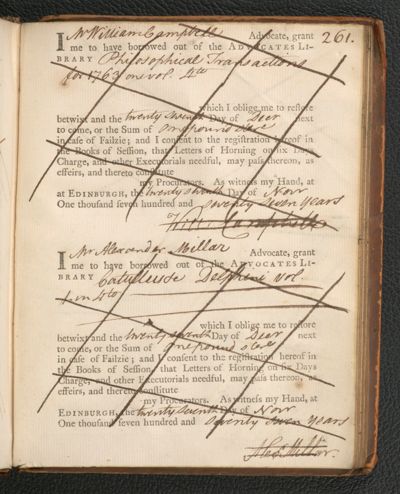 261.
I Mr William Campbell Advocate, grant
me to have borrowed out of the ADVOCATES LI-
BRARY Philosophical Transactions
for 1763 one vol. 4to
which I oblige me to reſtore
betwixt and the twenty seventh Day of Decr next
to come, or the Sum of one pound sterl
in caſe of Failzie; and I conſent to the regiſtration hereof in
the Books of Seſſion, that Letters of Horning on ſix Days
Charge, and other Executorials needful, may paſs thereon, as
effeirs, and thereto conſtitute
my Procurators. As witneſs my Hand, at
at EDINBURGH, the twenty seventh Day of Novr
One thouſand ſeven hundred and seventy seven years
Will: Campbell
I Mr Alexander Millar Advocate, grant
me to have borrowed out of the ADVOCATES LI-
BRARY Catullus Delphini vol.
1 in 4to
which I oblige me to reſtore
betwixt and the twenty seventh Day of Decr next
to come, or the Sum of one pound sterl
in caſe of Failzie; and I conſent to the regiſtration hereof in
the Books of Seſſion, that Letters of Horning on ſix Days
Charge, and other Executorials needful, may paſs thereon, as
effeirs, and thereto conſtitute
my Procurators. As witneſs my Hand, at
EDINBURGH, the twenty seventh Day of Novr
One thouſand ſeven hundred and seventy seven years
Alexr Millar.